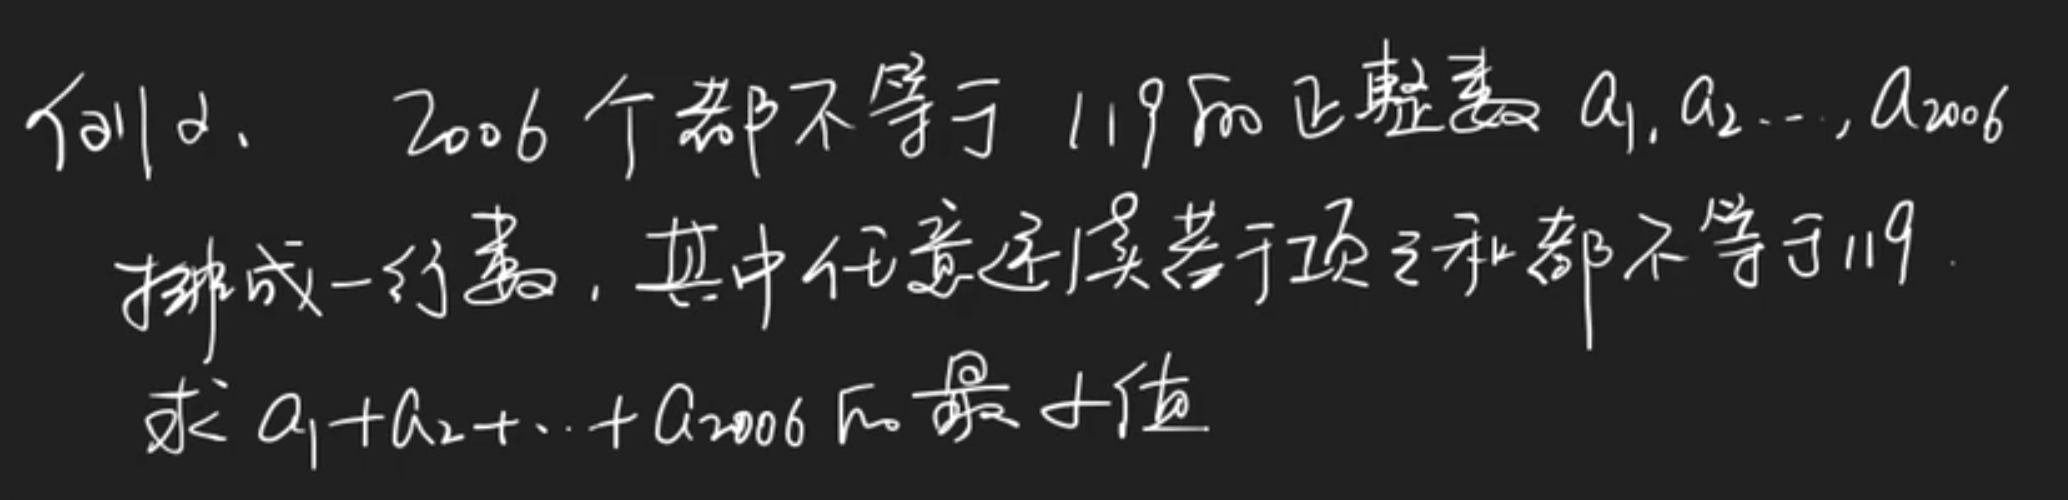 例2、 2006个都不等于119的正整数 a₁, a₂…, a₂₀₀₆
排成一行数, 其中任意连续若干项之和都不等于119.
求 a₁+a₂+…+a₂₀₀₆的最小值